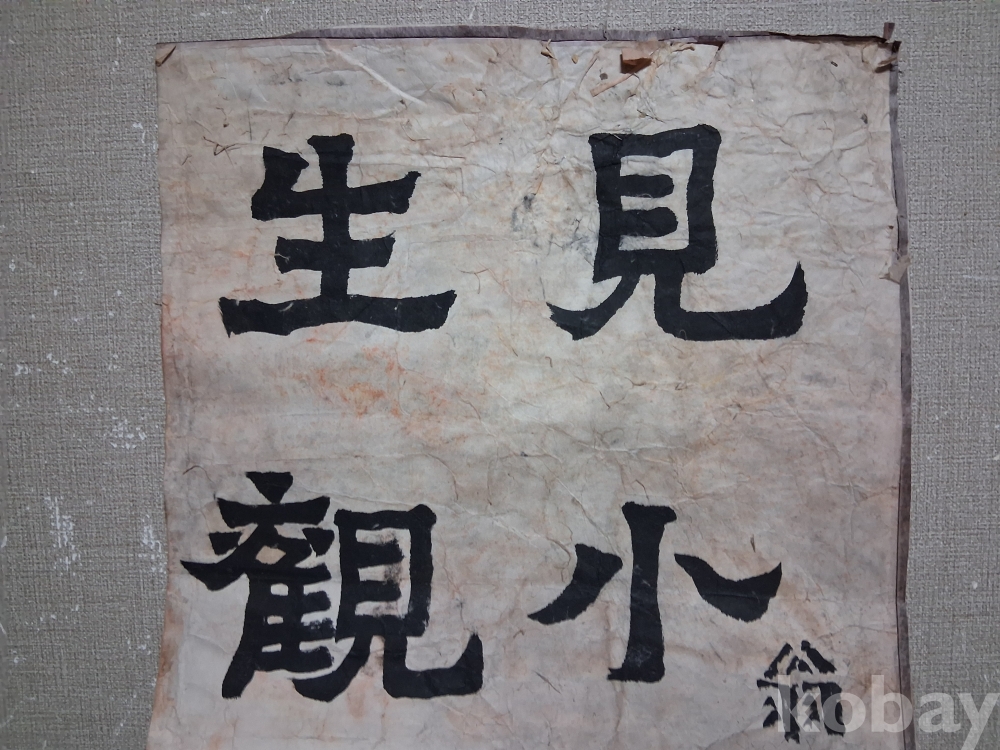 見小
翁
生觀
kobay